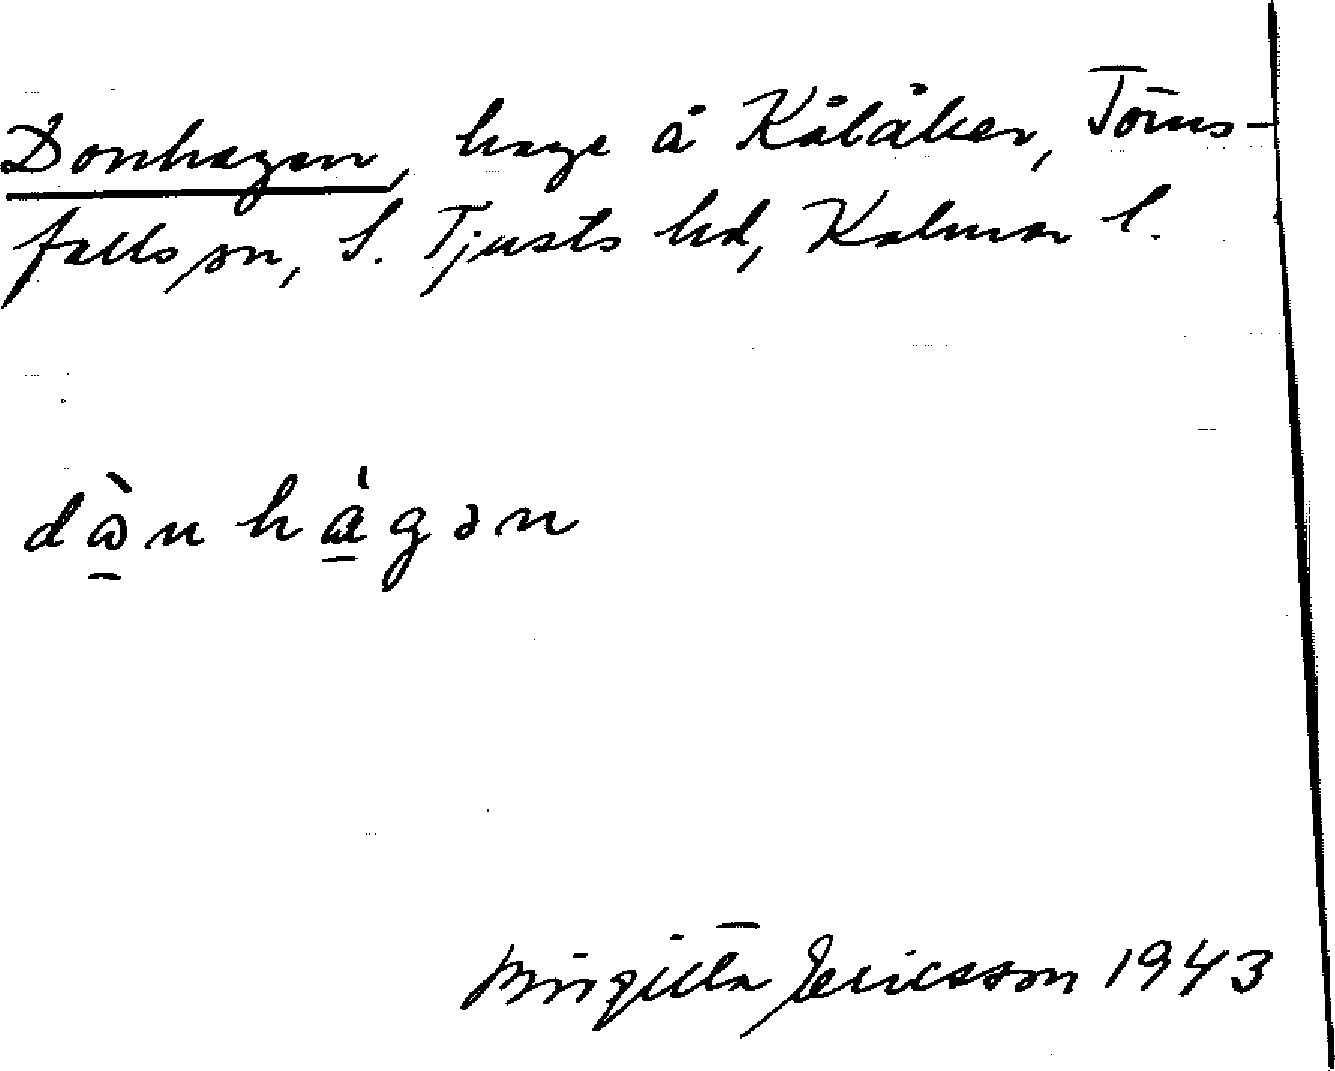 Donhagen, hage å Kålåker, Törns-
falls sn, S. Tjusts hd, Kalmar l.
dò̠nhá̠gən
Birgitta Ericsson 1943